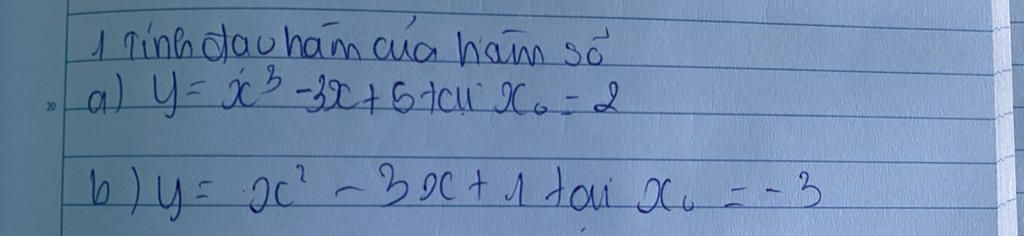 1 Tính đạo hàm của hàm số
a) y = x³ - 3x + 5 tại x₀ = 2
b) y = x² - 3x + 1 tại x₀ = -3